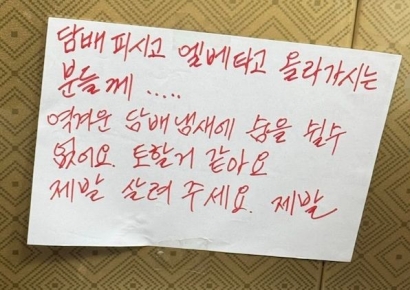 담배 피시고 엘베타고 올라가시는
분들께 .....
역겨운 담배냄새에 숨을 쉴수
없어요. 토할거 같아요
제발 살려 주세요. 제발